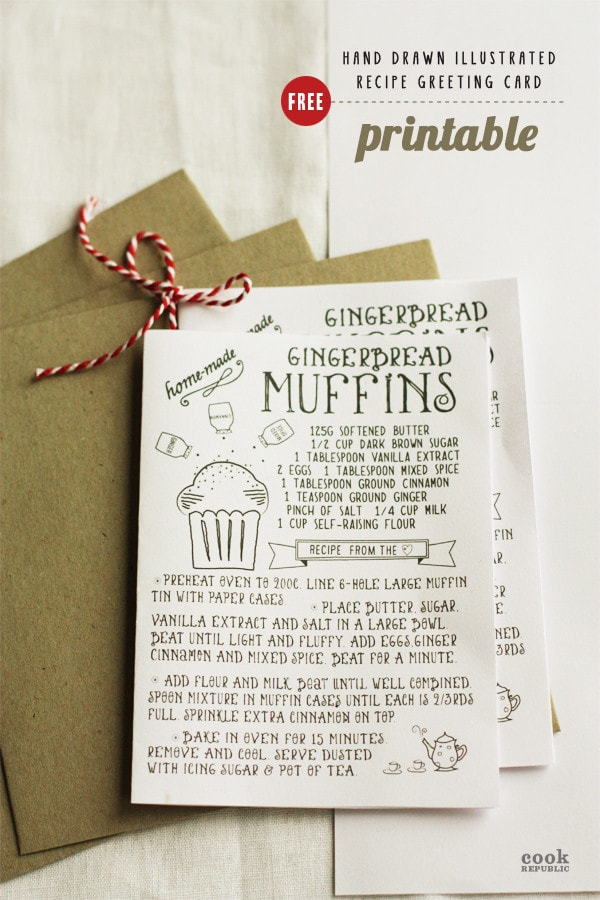 HAND DRAWN ILLUSTRATED
RECIPE GREETING CARD
FREE
printable
home-made
GINGERBREAD
GINGERBREAD
MUFFINS
125G SOFTENED BUTTER
1/2 CUP DARK BROWN SUGAR
1 TABLESPOON VANILLA EXTRACT
2 EGGS 1 TABLESPOON MIXED SPICE
1 TABLESPOON GROUND CINNAMON
1 TEASPOON GROUND GINGER
PINCH OF SALT 1/4 CUP MILK
1 CUP SELF-RAISING FLOUR
RECIPE FROM THE
PREHEAT OVEN TO 200C. LINE 6-HOLE LARGE MUFFIN
TIN WITH PAPER CASES
PLACE BUTTER, SUGAR,
VANILLA EXTRACT AND SALT IN A LARGE BOWL.
BEAT UNTIL LIGHT AND FLUFFY. ADD EGGS,GINGER
CINNAMON AND MIXED SPICE. BEAT FOR A MINUTE.
ADD FLOUR AND MILK BEAT UNTIL WELL COMBINED.
SPOON MIXTURE IN MUFFIN CASES UNTIL EACH IS 2/3RDS
FULL. SPRINKLE EXTRA CINNAMON ON TOP.
BAKE IN OVEN FOR 15 MINUTES.
REMOVE AND COOL. SERVE DUSTED
WITH ICING SUGAR & POT OF TEA.
cook
REPUBLIC